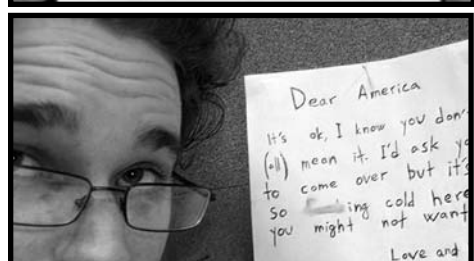 Dear America
It's ok, I know you don't
(all) mean it. I'd ask yo
to come over but it's
so ing cold here
you might not want
Love and